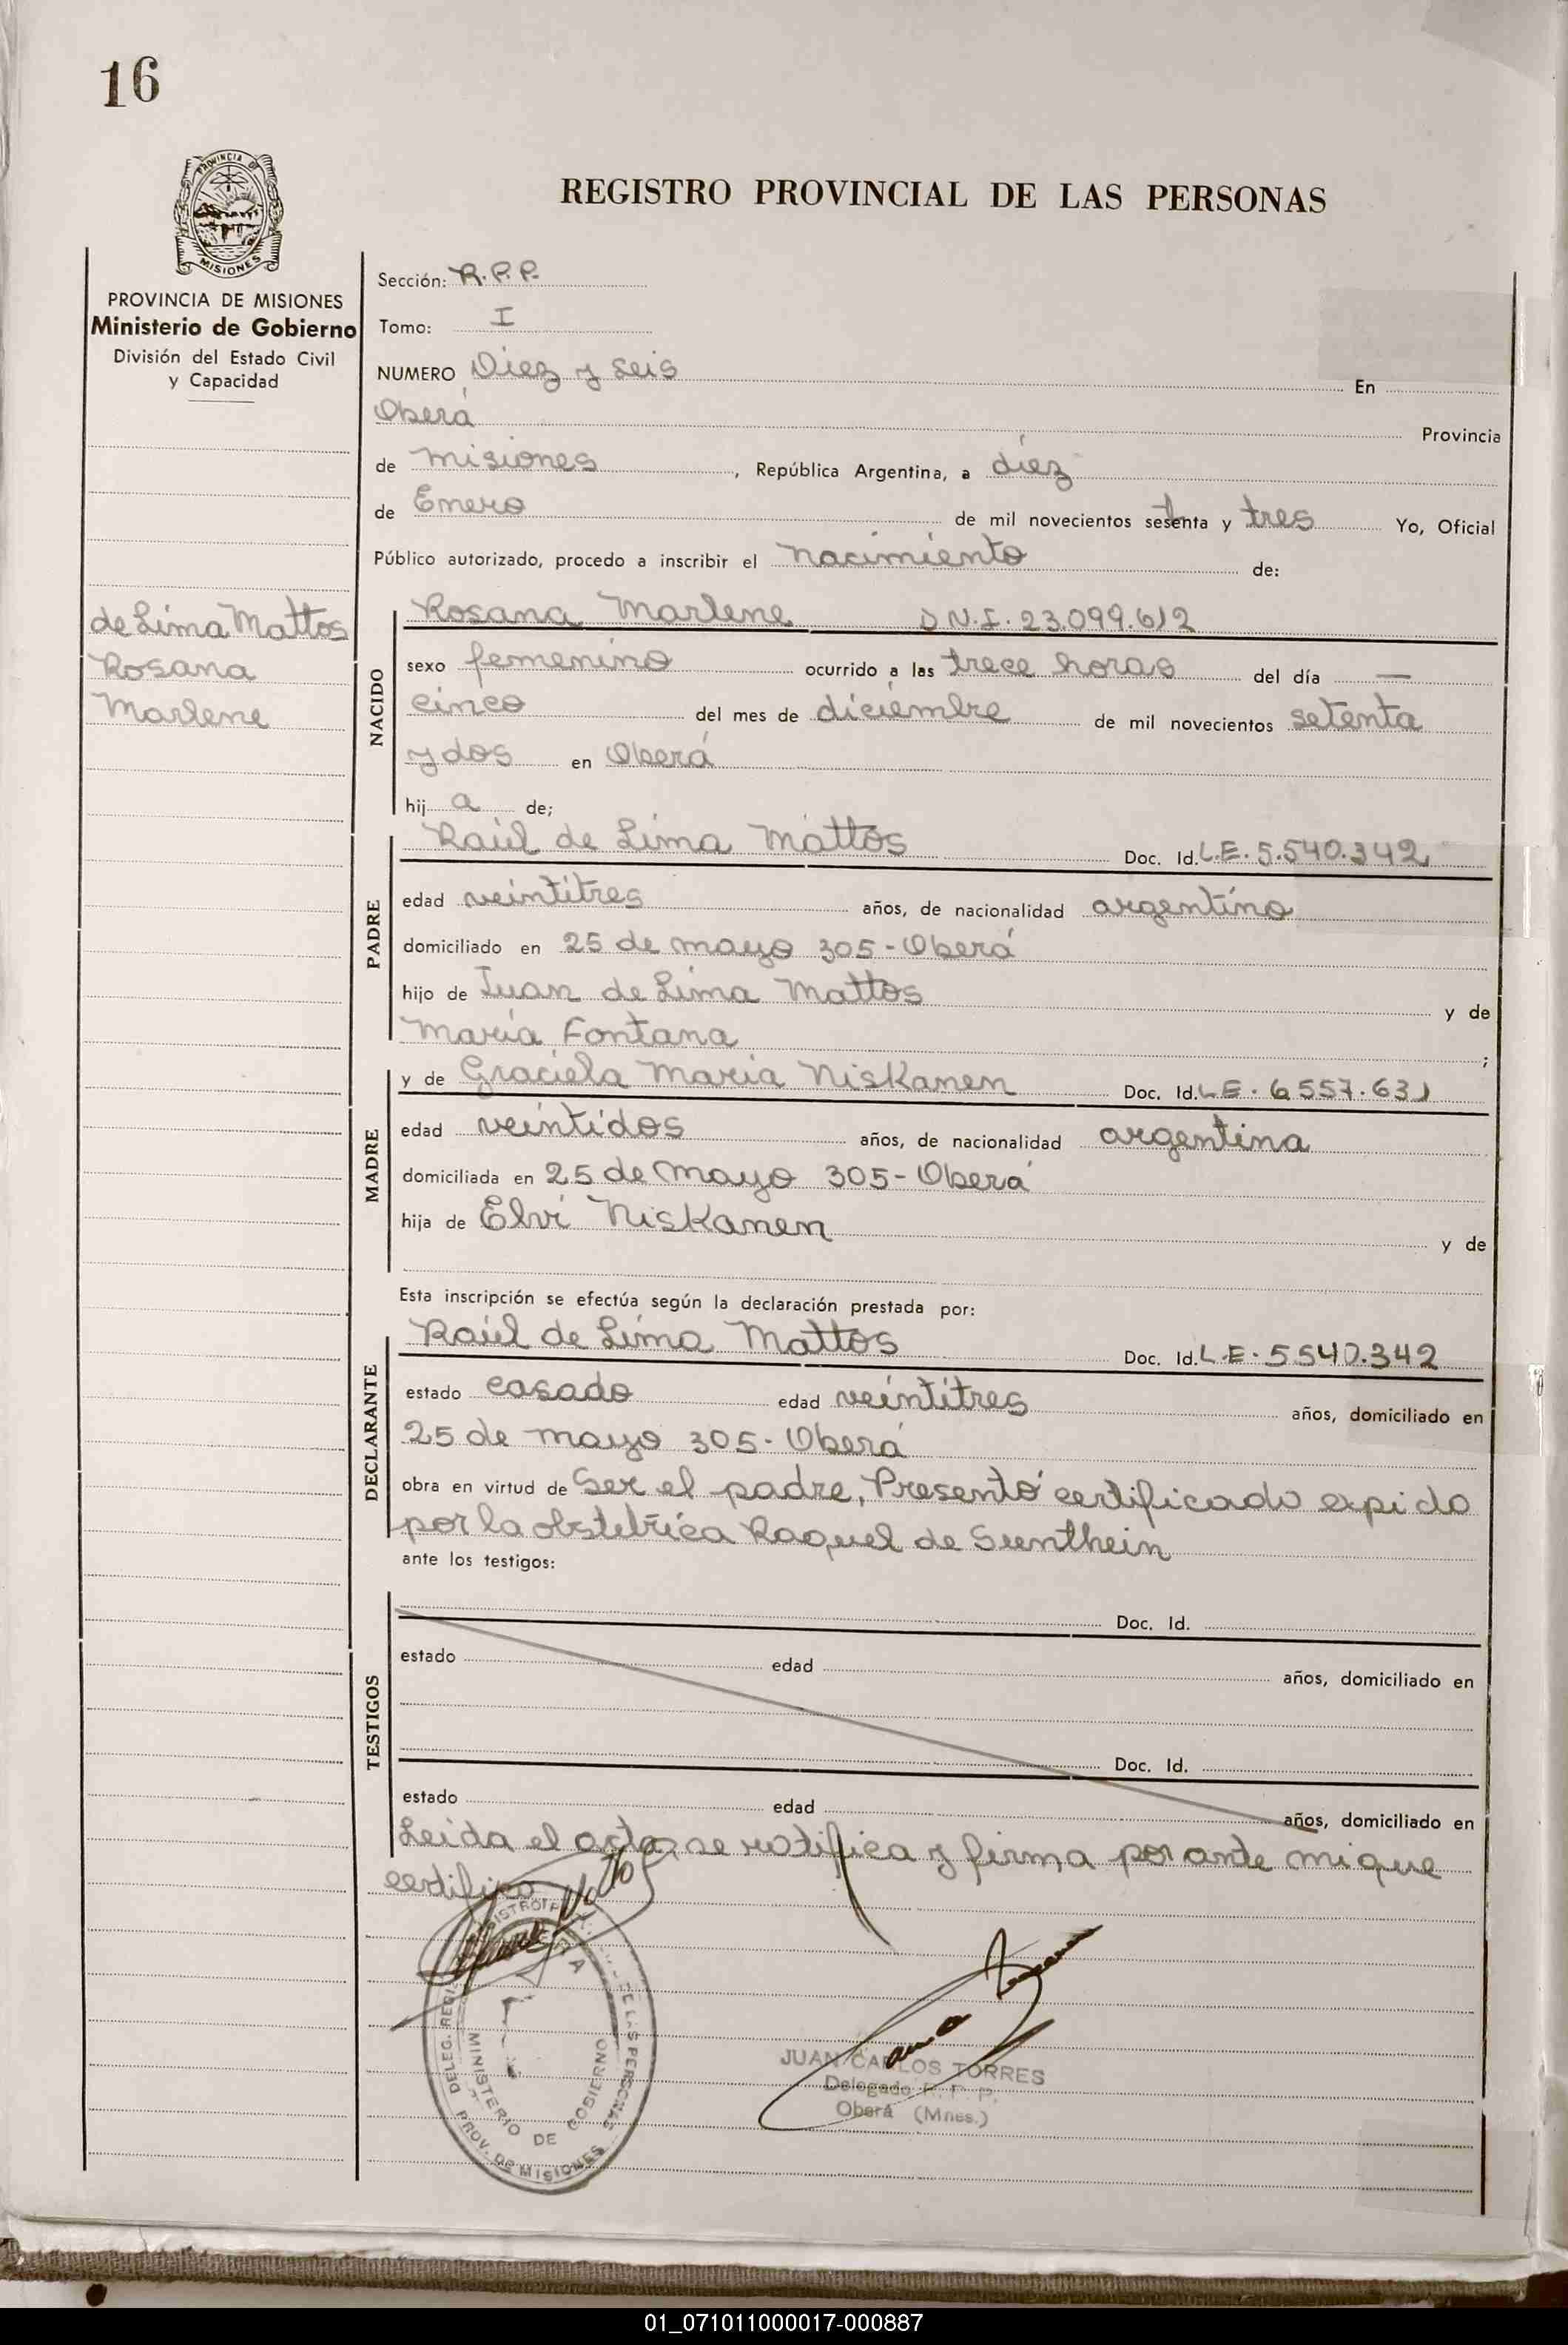 16
PROVINCIA DE
MISIONES
REGISTRO PROVINCIAL DE LAS PERSONAS
PROVINCIA DE MISIONES
Ministerio de Gobierno
División del Estado Civil
y Capacidad
de Lima Mattos
Rosana
Marlene
Sección: R.P.P.
Tomo: I
NUMERO Diez y seis En
Oberá Provincia
de misiones, República Argentina, a diez
de Enero de mil novecientos setenta y tres Yo, Oficial
Público autorizado, procedo a inscribir el nacimiento de:
NACIDO
Rosana Marlene D.N.I. 23.099.612
sexo femenino ocurrido a las trece horas del día —
cinco del mes de diciembre de mil novecientos setenta
y dos en Oberá
hij a de;
PADRE
Raúl de Lima Mattos Doc. Id. L.E. 5.540.342
edad veintitres años, de nacionalidad argentino
domiciliado en 25 de mayo 305 - Oberá
hijo de Juan de Lima Mattos y de
María Fontana ;
MADRE
y de Graciela María Niskanen Doc. Id. L.E. 6557.631
edad veintidos años, de nacionalidad argentina
domiciliada en 25 de mayo 305 - Oberá
hija de Elvi Niskanen y de
Esta inscripción se efectúa según la declaración prestada por:
DECLARANTE
Raúl de Lima Mattos Doc. Id. L.E. 5540.342
estado casado edad veintitres años, domiciliado en
25 de mayo 305 - Oberá
obra en virtud de Ser el padre, Presentó certificado expido
por la obstetrica Raquel de Sunthein
ante los testigos:
TESTIGOS
Doc. Id.
estado edad años, domiciliado en
Doc. Id.
estado edad años, domiciliado en
Leida el acta, se ratifica y firma por ante mi que
certifico
DELEG. REGISTRO PROV. DE LAS PERSONAS
MINISTERIO DE GOBIERNO
PROV. DE MISIONES
JUAN CARLOS TORRES
Delegado R. P. P.
Oberá (Mnes.)
01_071011000017-000887